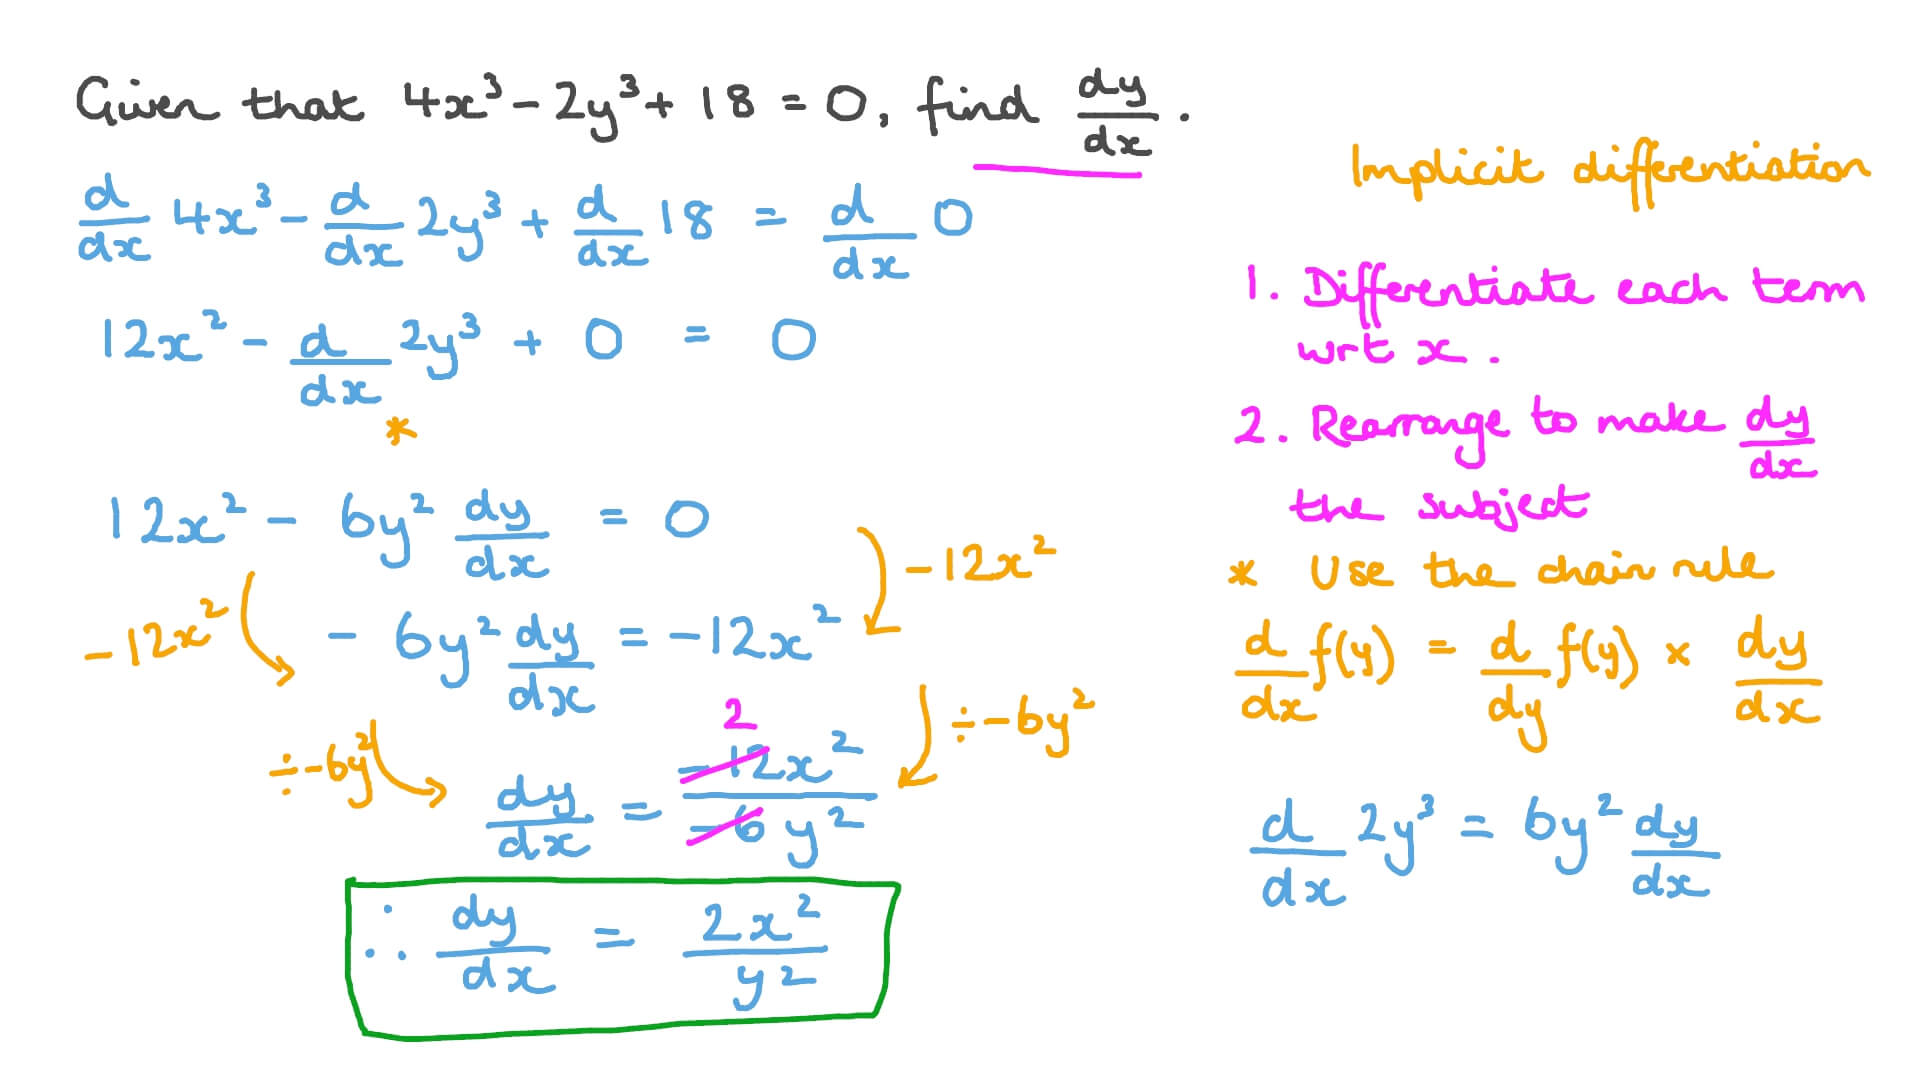 Given that 4x³ - 2y³ + 18 = 0, find dy/dx.
d/dx 4x³ - d/dx 2y³ + d/dx 18 = d/dx 0
12x² - d/dx 2y³ + 0 = 0
*
12x² - 6y² dy/dx = 0
-12x²
-12x²
- 6y² dy/dx = -12x²
÷-6y²
÷-6y²
2
dy/dx = -12x²/-6y²
∴ dy/dx = 2x²/y²
Implicit differentiation
1. Differentiate each term
wrt x.
2. Rearrange to make dy/dx
the subject
* Use the chain rule
d/dx f(y) = d/dy f(y) × dy/dx
d/dx 2y³ = 6y² dy/dx